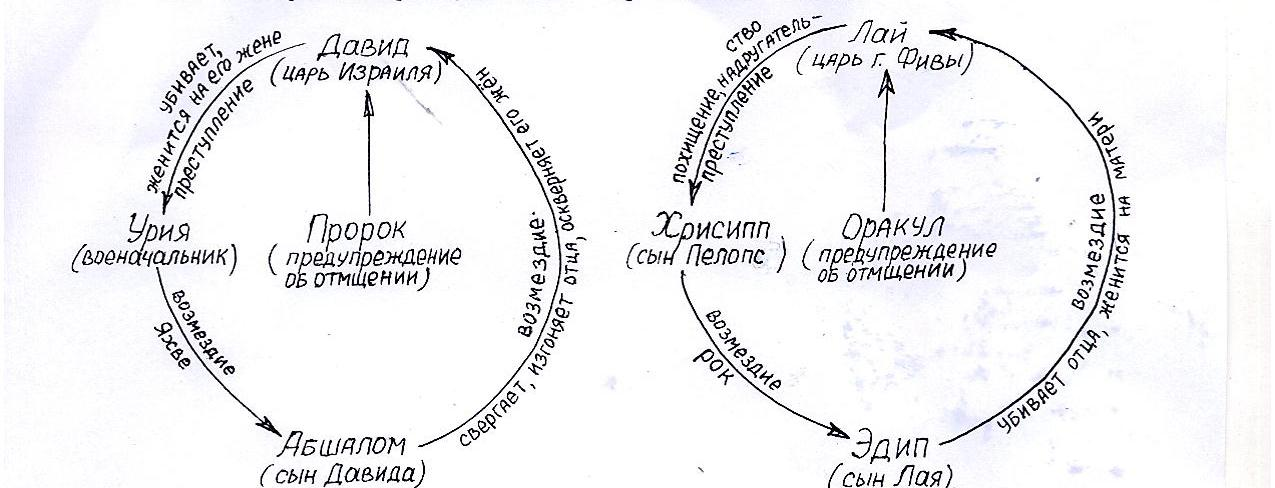 Давид
(царь Израиля)
убивает,
женится на его жене
преступление
Урия
(военачальник)
Пророк
(предупреждение
об отмщении)
возмездие
Яхве
Абшалом
(сын Давида)
возмездие
свергает, изгоняет отца, оскверняет его жён
Лай
(царь г. Фивы)
похищение, надругатель-
ство
преступление
Хрисипп
(сын Пелопс)
Оракул
(предупреждение
об отмщении)
возмездие
рок
Эдип
(сын Лая)
возмездие
убивает отца, женится на матери